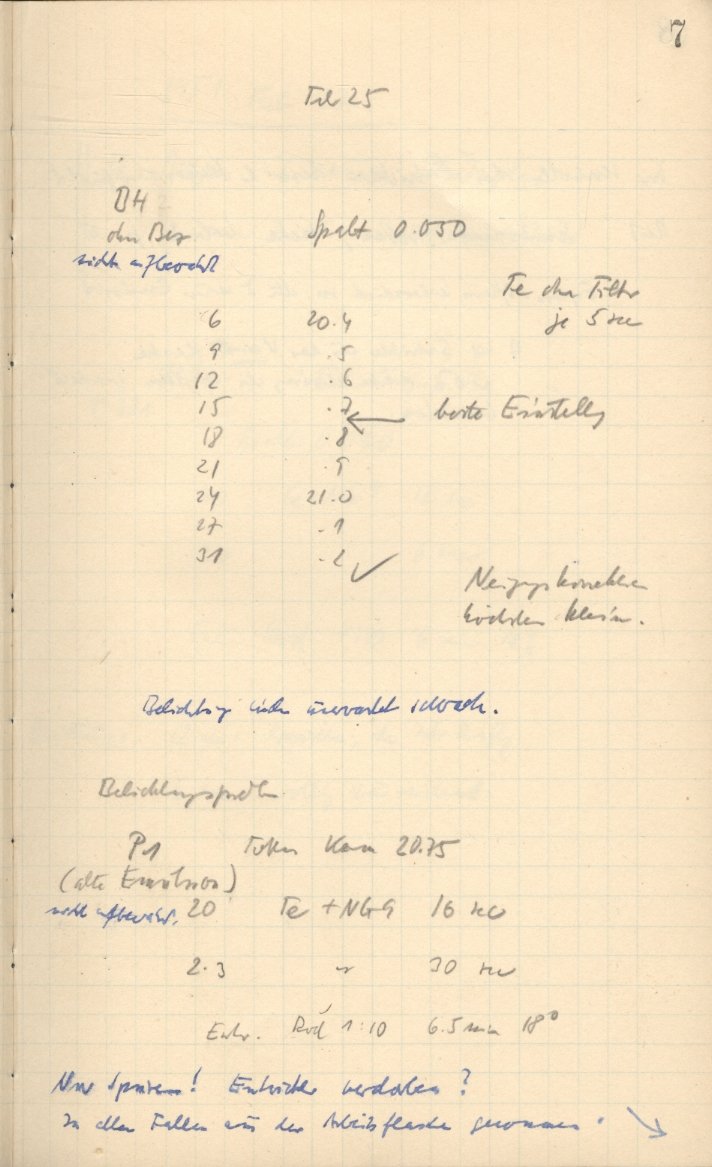 7
Feb 25
BH
ohne Bez
nicht aufbewahrt
Spalt 0.050
Te ohne Filter
je 5 sec
6 20.4
9 .5
12 .6
15 .7
← beste Einstellg
18 .8
21 .9
24 21.0
27 .1
31 .2 ✓
Neigungskorrektur
höchstens klein.
Belichtung unerwartet schwach.
Belichtungsproben
P1 Fokus Kam 20.75
(alte Emulsion)
nicht aufbewahrt. 20 Te + NG9 16 sec
2.3 " 30 sec
Entw. Rod 1:10 6.5 min 18°
Nur Spuren! Entwickler verdorben?
In allen Fällen aus der Arbeitsflasche genommen.